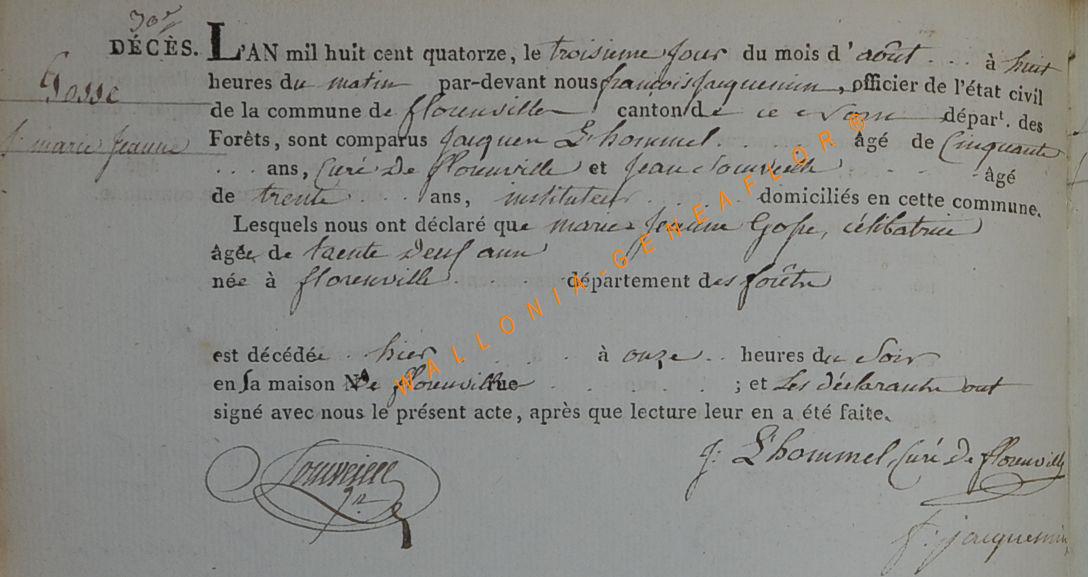 30e
DÉCÈS. L'AN mil huit cent quatorze, le troisieme jour du mois d'août à huit
Gosse
heures du matin par-devant nous françois Jacquemin, officier de l'état civil
de la commune de florenville canton de ce Nom départ. des
marie Jeanne
Forêts, sont comparus Jacques L'hommel âgé de Cinquante
ans, Curé De florenville et Jean Souveille âgé
de trente ans, instituteur domiciliés en cette commune.
Lesquels nous ont déclaré que marie Jeanne Gosse, célibatrice
âgée de trente neuf ans
née à florenville département des forêts
est décédée hier à onze heures du Soir
en sa maison No de florenville rue ; et Les déclarants ont
signé avec nous le présent acte, après que lecture leur en a été faite.
J: L'hommel, Curé De florenville
f: jacquemin
WALLONIA-GENEAFLOR®